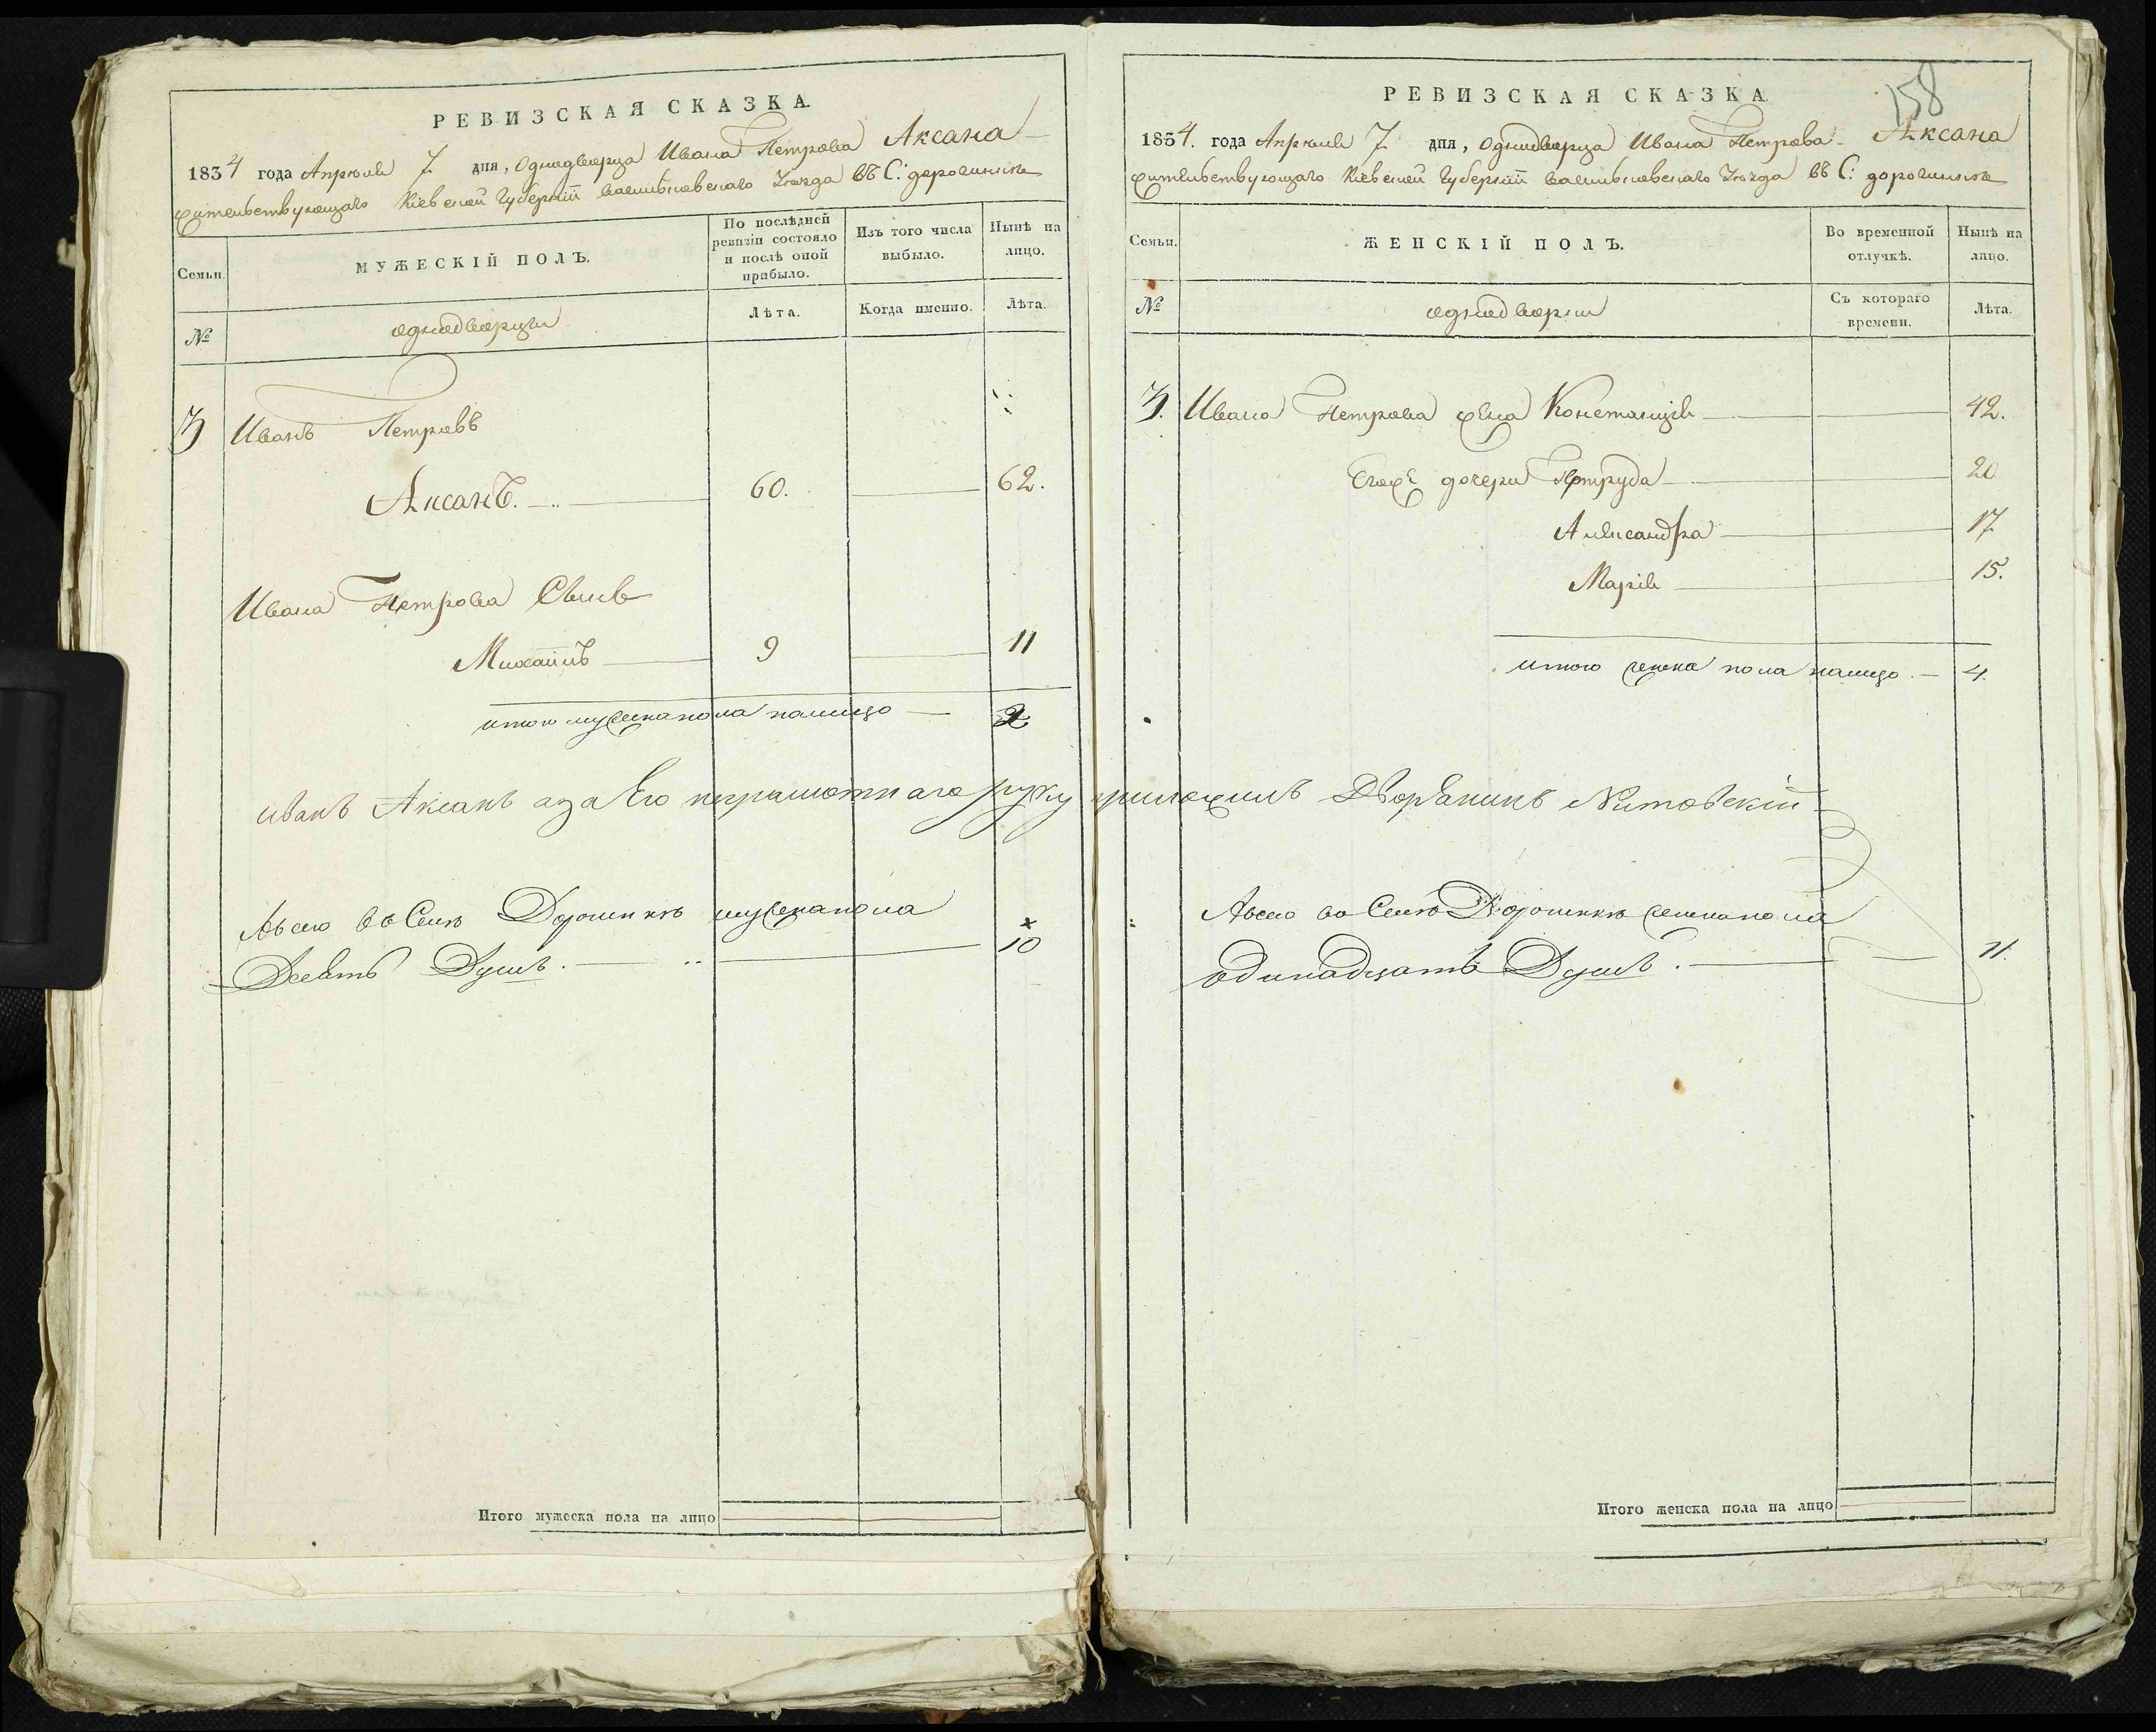 РЕВИЗСКАЯ СКАЗКА.
1834 года Апреля 7 дня, Однодворца Ивана Петрова Аксана
жительствующаго Кіевской Губерніи Васильковскаго Уѣзда въ С: дорогинкѣ
Семьи.
МУЖЕСКІЙ ПОЛЪ.
По послѣдней ревизіи состояло и послѣ оной прибыло.
Изъ того числа выбыло.
Нынѣ на лицо.
№
однодворцы
Лѣта.
Когда именно.
Лѣта.
3 Иванъ Петровъ
Аксанъ. 60. 62.
Ивана Петрова Сынъ
Михаилъ 9 11
итого мужеска пола налицо 2
Иванъ Аксанъ а за Его неграмотнаго руку приложилъ Дворянинъ
Авсего въ Селѣ Дорогинкѣ мужеска пола
Десять Душъ. 10
Итого мужеска пола на лицо
158
РЕВИЗСКАЯ СКАЗКА.
1834. года Апреля 7 дня, Однодворца Ивана Петрова Аксана
жительствующаго Кіевской Губерніи Васильковскаго Уѣзда въ С: дорогинкѣ
Семьи.
ЖЕНСКІЙ ПОЛЪ.
Во временной отлучкѣ.
Нынѣ на лицо.
№
однодворки
Съ котораго времени.
Лѣта.
3. Ивана Петрова жена Констанція 42.
Егоже дочери Петруда 20
Александра 17
Марія 15.
итого женска пола налицо. 4.
Авсего во Селѣ Дорогинкѣ женска пола
одинадцать Душъ. 11.
Итого женска пола на лицо